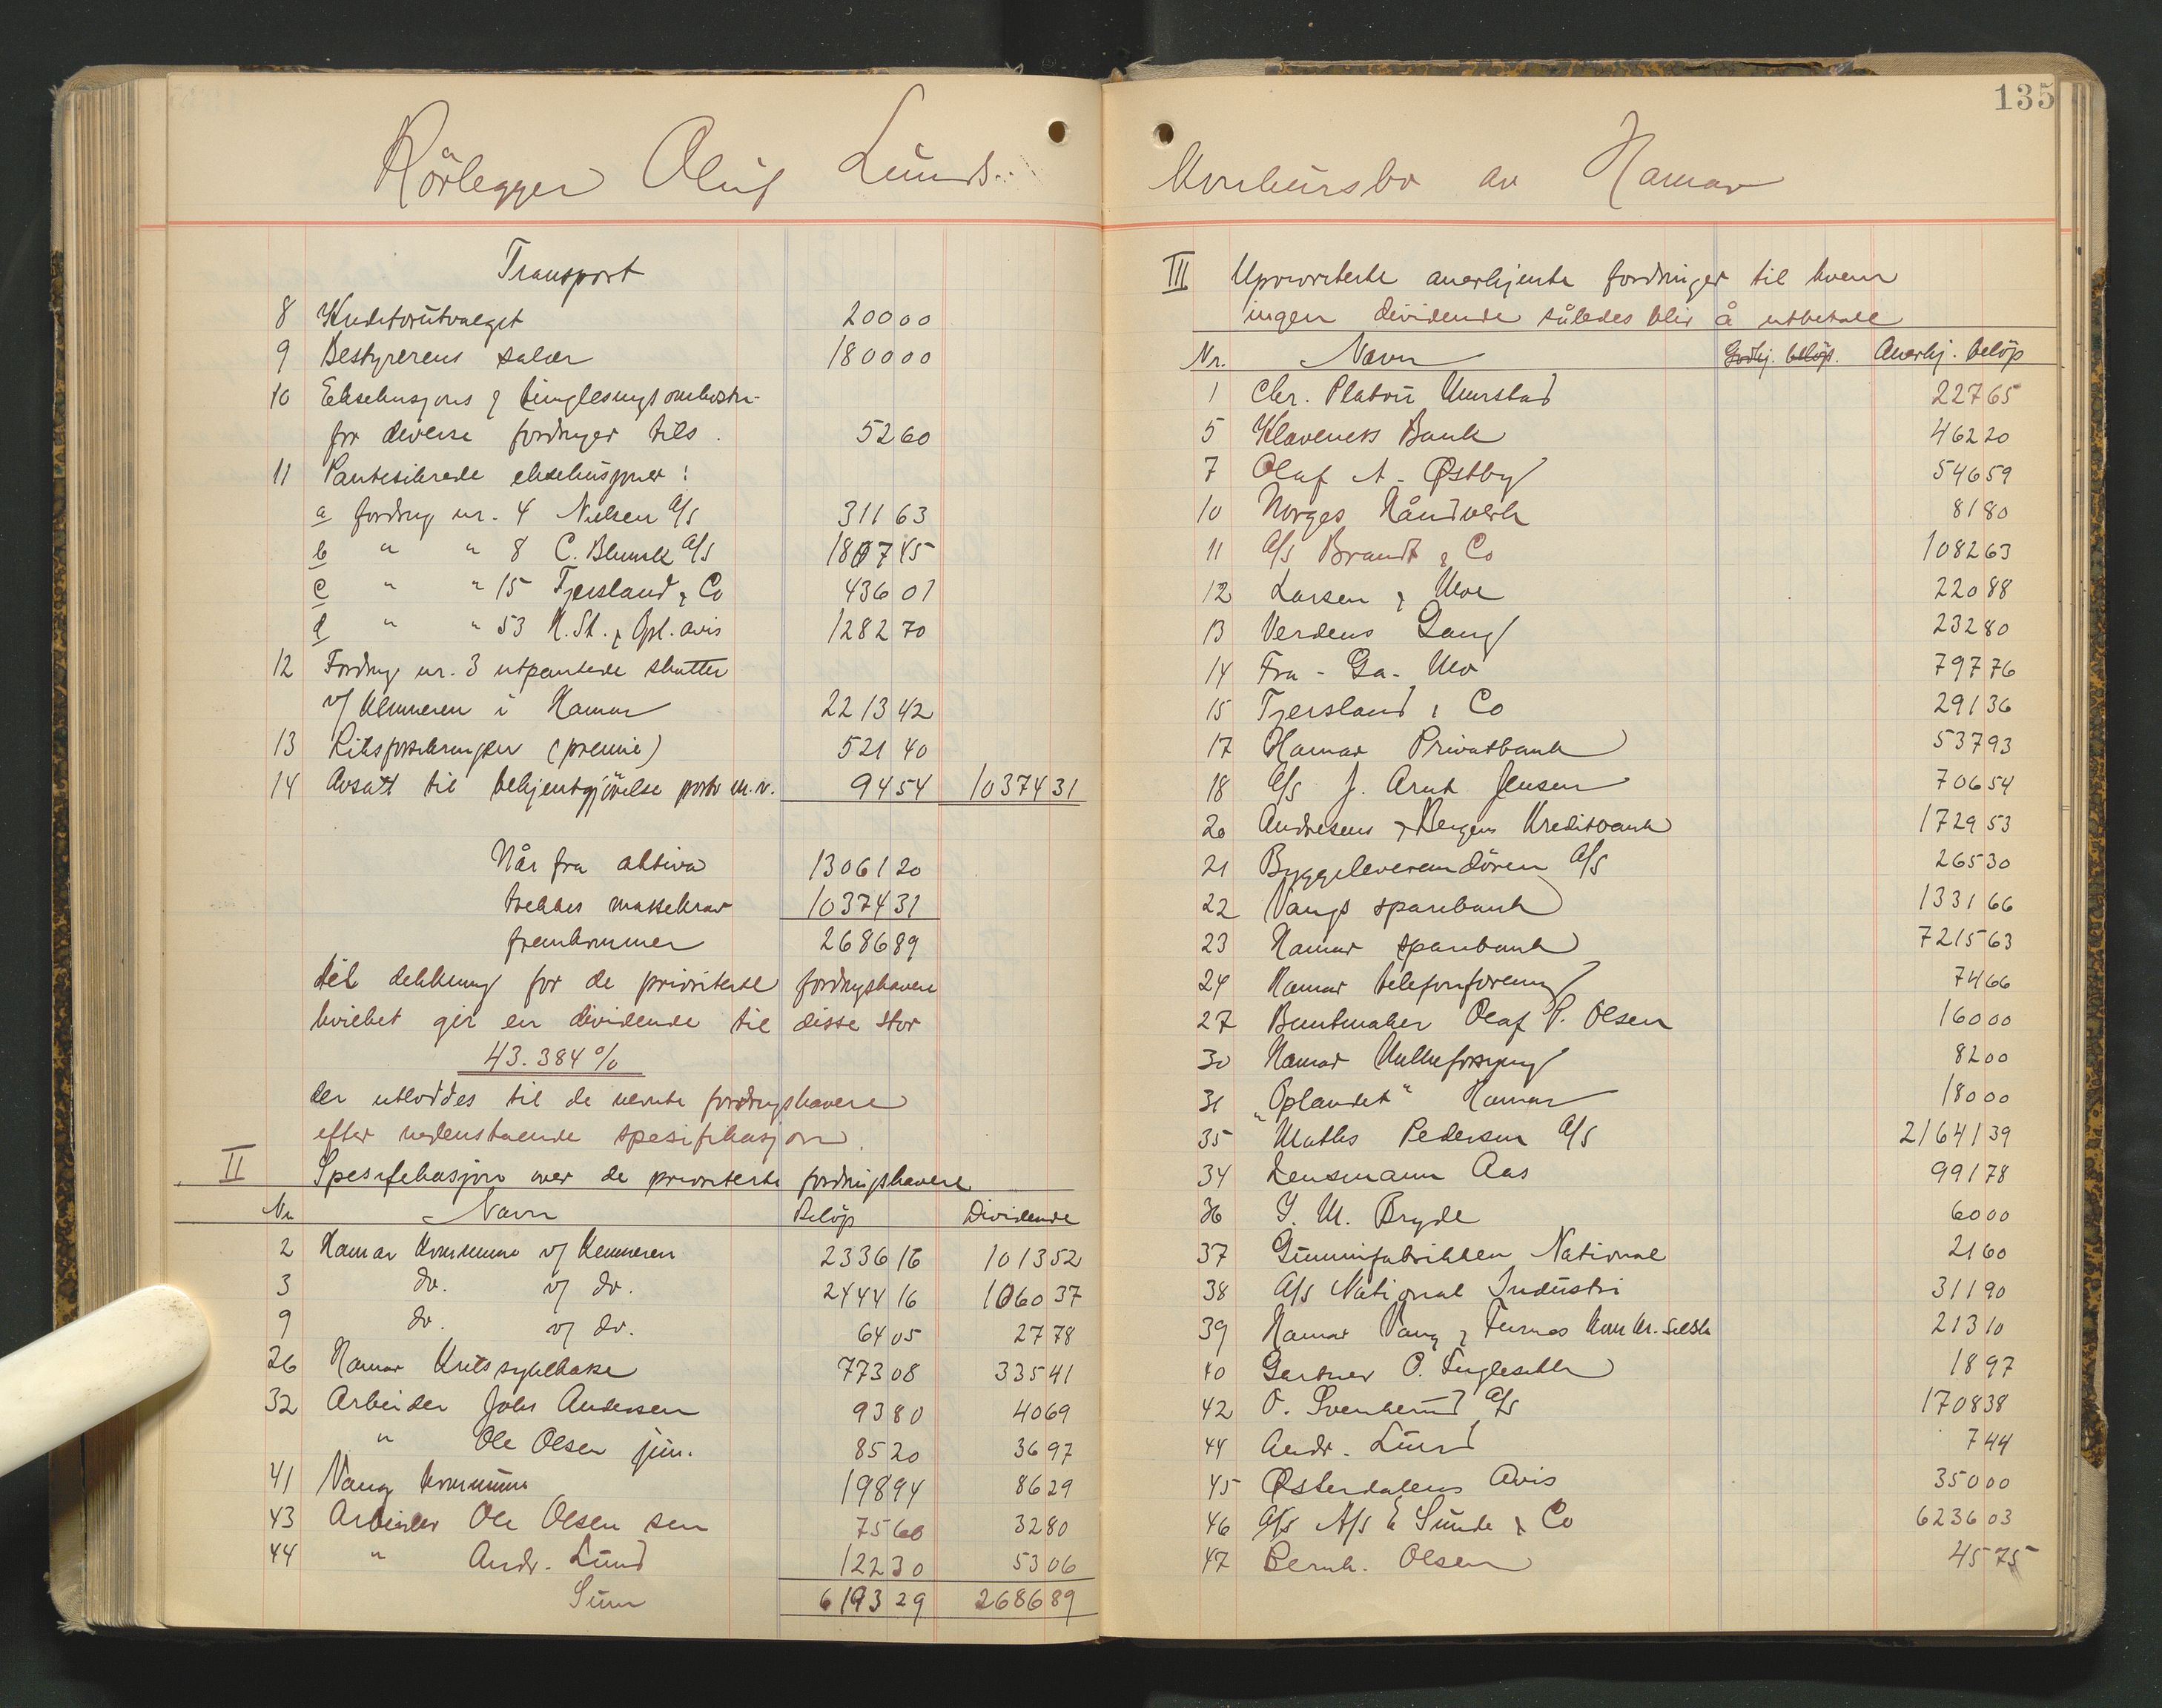 Rörlegger Oluf Lunds
Transport
8 Kreditorutvalget 200 00
9 Bestyrerens salær 1800 00
10 Eksekusjons & tinglesningsomkostn.
for diverse fordringer tils. 52 60
11 Pantesikrede eksekusjoner:
a fordring nr. 4 Nielsen A/S 311 63
b " " 8 C. Blunck A/S 1807 45
c " " 15 Tjersland & Co 436 01
d " " 53 H. St. & Opl. avis 1282 70
12 Fordring nr. 3 utpantede skatter
v/ Kemneren i Hamar 2213 42
13 Riksforsikringen (premie) 521 40
14 Avsatt til bekjentgjörelse porto m.v. 94 54 10374 31
Når fra aktiva 13061 20
trekkes massekrav 10374 31
fremkommer 2686 89
til dekkning for de prioriterte fordringshavere
hvilket gir en dividende til disse stor
43.384 %
der utloddes til de nevnte fordringshavere
efter nedenstaende spesifikasjon.
II Spesifikasjon over de prioriterte fordringshavere
Nr. Navn Belöp Dividende
2 Hamar kommune v/ Kemneren 2336 16 1013 52
3 do. v/ do. 2444 16 1060 37
9 do. v/ do. 64 05 27 78
26 Hamar Kretssykekasse 773 08 335 41
32 Arbeider Johs Andersen 93 80 40 69
" Ole Olsen jun. 85 20 36 97
41 Vang kommune 198 94 86 29
43 Arbeider Ole Olsen sen 75 60 32 80
44 " Andr. Lund 122 30 53 06
Sum 6193 29 2686 89
135
Konkursbo av Hamar
III Uprioriterte anerkjente fordringer til hvem
ingen dividende således blir å utbetale
Nr. Navn Godkj. belöp. Anerkj. belöp
1 Chr. Platou Murstad 227 65
5 Klaveness Bank 462 20
7 Olaf A. Østby 546 59
10 Norges Håndverk 81 80
11 A/S Brandt & Co 1082 63
12 Larsen & Moe 220 88
13 Verdens Gang 232 80
14 Fra - Ga - Mo 797 76
15 Tjersland & Co 291 36
17 Hamar Privatbank 537 93
18 A/S J. Arnt Jensen 706 54
20 Andresens & Bergens Kreditbank 1729 53
21 Byggeleverandören A/S 265 30
22 Vangs sparebank 1331 66
23 Hamar sparebank 7215 63
24 Hamar telefonforening 74 66
27 Buntmaker Olaf P. Olsen 160 00
30 Hamar Kullforsyning 82 00
31 "Oplandet" Hamar 180 00
35 Maths Pedersen A/S 21641 39
34 Lensmann Aas 991 78
36 I. M. Bryde 60 00
37 Gummifabrikken National 21 60
38 A/S National Industri 311 90
39 Hamar Vang & Furnes Kom. Kr. selsk 213 10
40 Gartner O. 18 97
42 O. Svenkerud A/S 1708 38
44 Andr. Lund 7 44
45 Østerdalens Avis 350 00
46 A/S A/S E Sunde & Co 6236 03
47 Bernh. Olsen 45 75